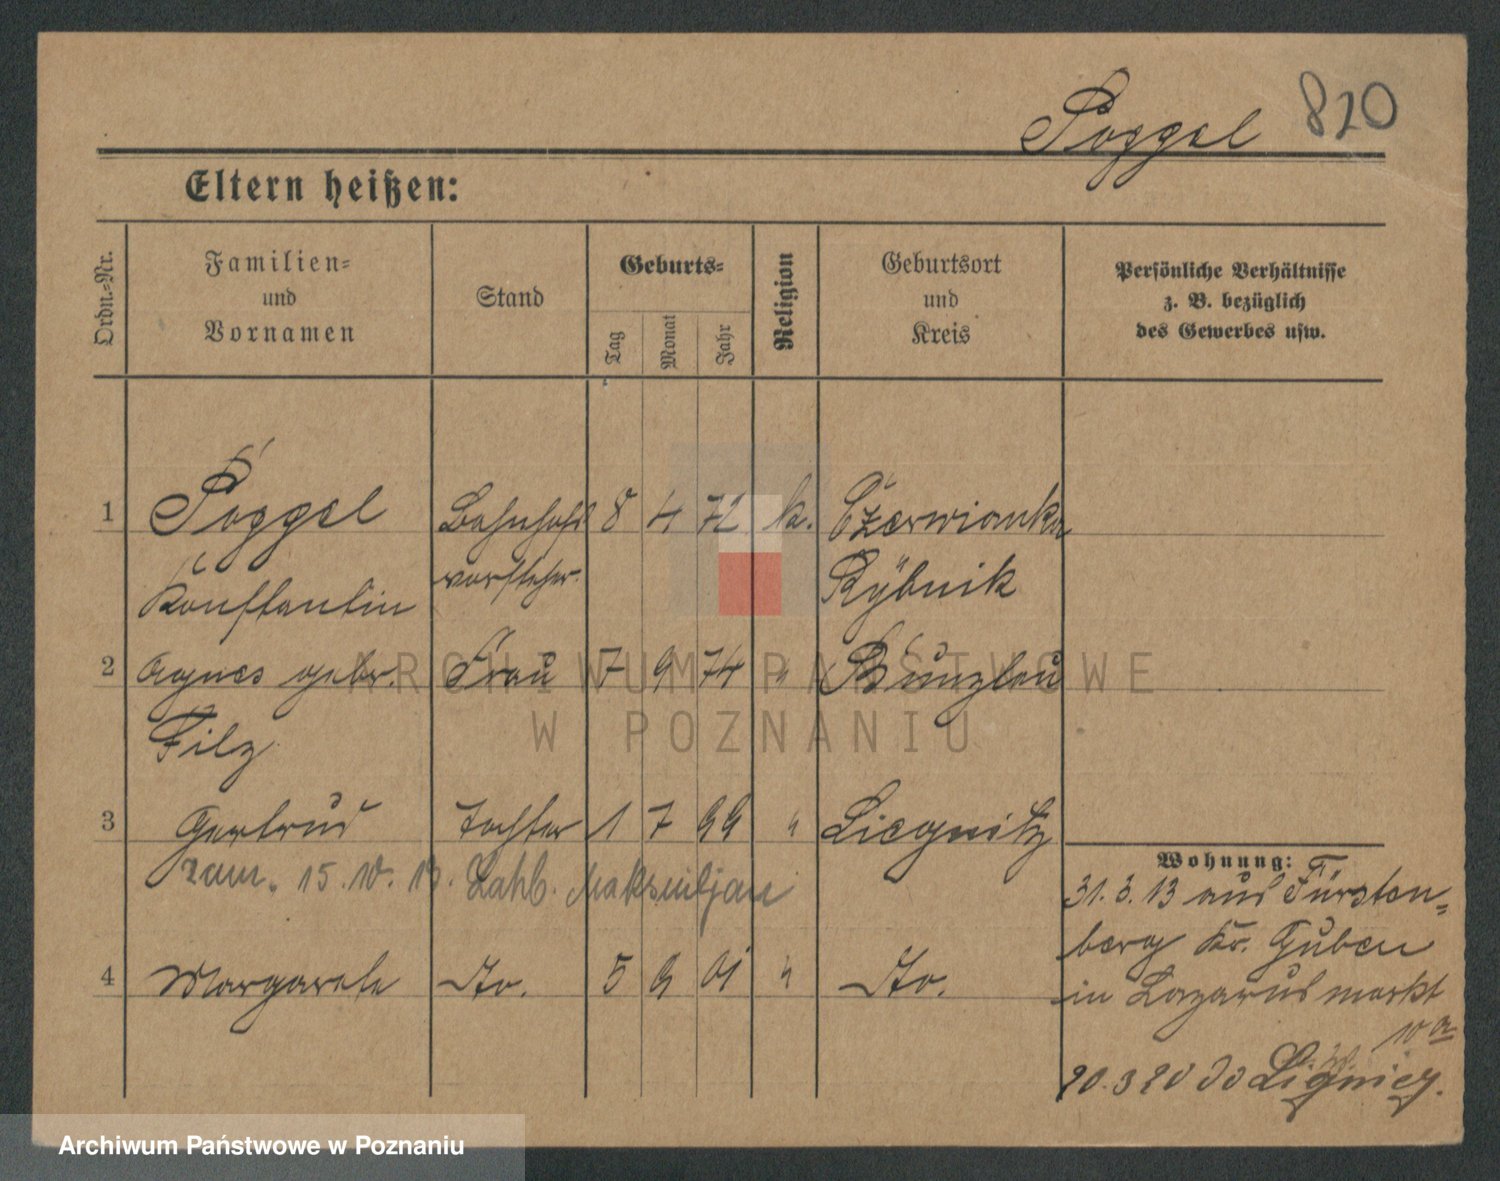 Poggel 820
Eltern heißen:
Ordn.-Nr.
Familien-
und
Vornamen
Stand
Geburts-
Tag
Monat
Jahr
Religion
Geburtsort
und
Kreis
Persönliche Verhältnisse
z. B. bezüglich
des Gewerbes usw.
1 Poggel Bahnhofs 8 4 72 k. Czerwionka
Konstantin vorsteher. Rybnik
2 Agnes gebr. Frau 7 9 74 " Bunzlau
Filz
3 Gertrud Tochter 1 7 99 " Liegnitz
15. 10. Maksmiljan
4 Margarete do. 5 9 01 " do.
Wohnung:
31. 3. 13 aus Fürsten-
berg Kr. Guben
in Lazarus markt
10 a
20. 3 20 do Lignicy.
ARCHIWUM PAŃSTWOWE
W POZNANIU
Archiwum Państwowe w Poznaniu